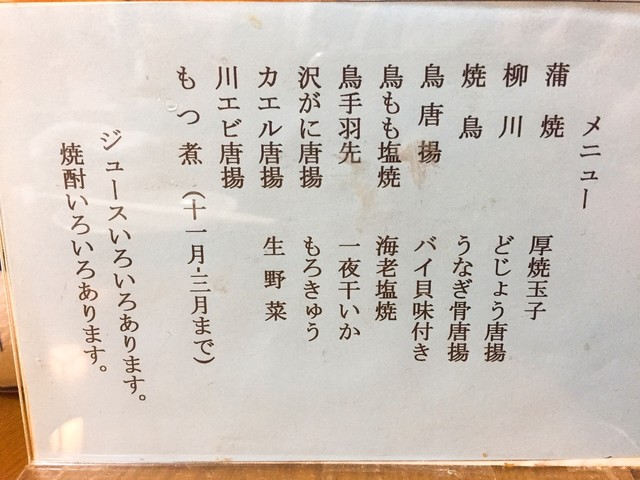 メニュー
蒲焼
柳川
焼鳥
鳥唐揚
鳥もも塩焼
鳥手羽先
沢がに唐揚
カエル唐揚
川エビ唐揚
もつ煮 (十一月-三月まで)
厚焼玉子
どじょう唐揚
うなぎ骨唐揚
バイ貝味付き
海老塩焼
一夜干いか
もろきゅう
生野菜
ジュースいろいろあります。
焼酎いろいろあります。